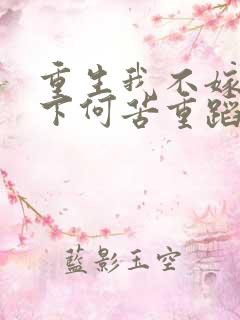 重生我不嫁
下何苦重蹈
藍影玉空